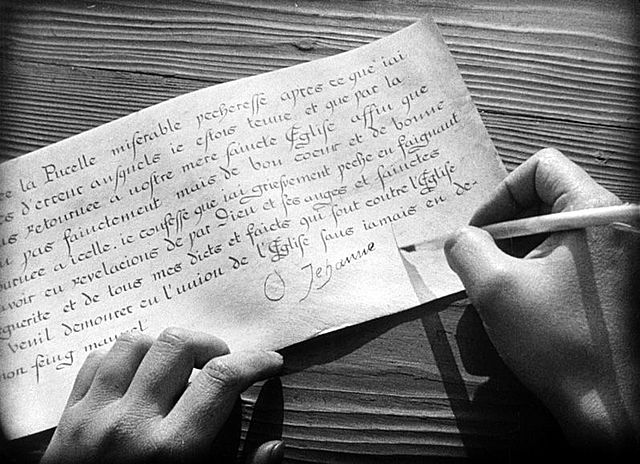 la Pucelle miserable pecheresse apres ce que iai
d'erreur ausquels ie estois tenue et que par la
retournee a nostre mère saincte Eglise affin que
pas fainctement mais de bon coeur et de bonne
a icelle. ie confesse que iai griefvement peche en faignant
avoir eu revelacions de par Dieu et ses anges et sainctes
et de tous mes dicts et faicts qui sont contre l'Eglise
veuil demourer en l'union de l'Eglise sans iamais en de-
seing manuel
O Jehanne